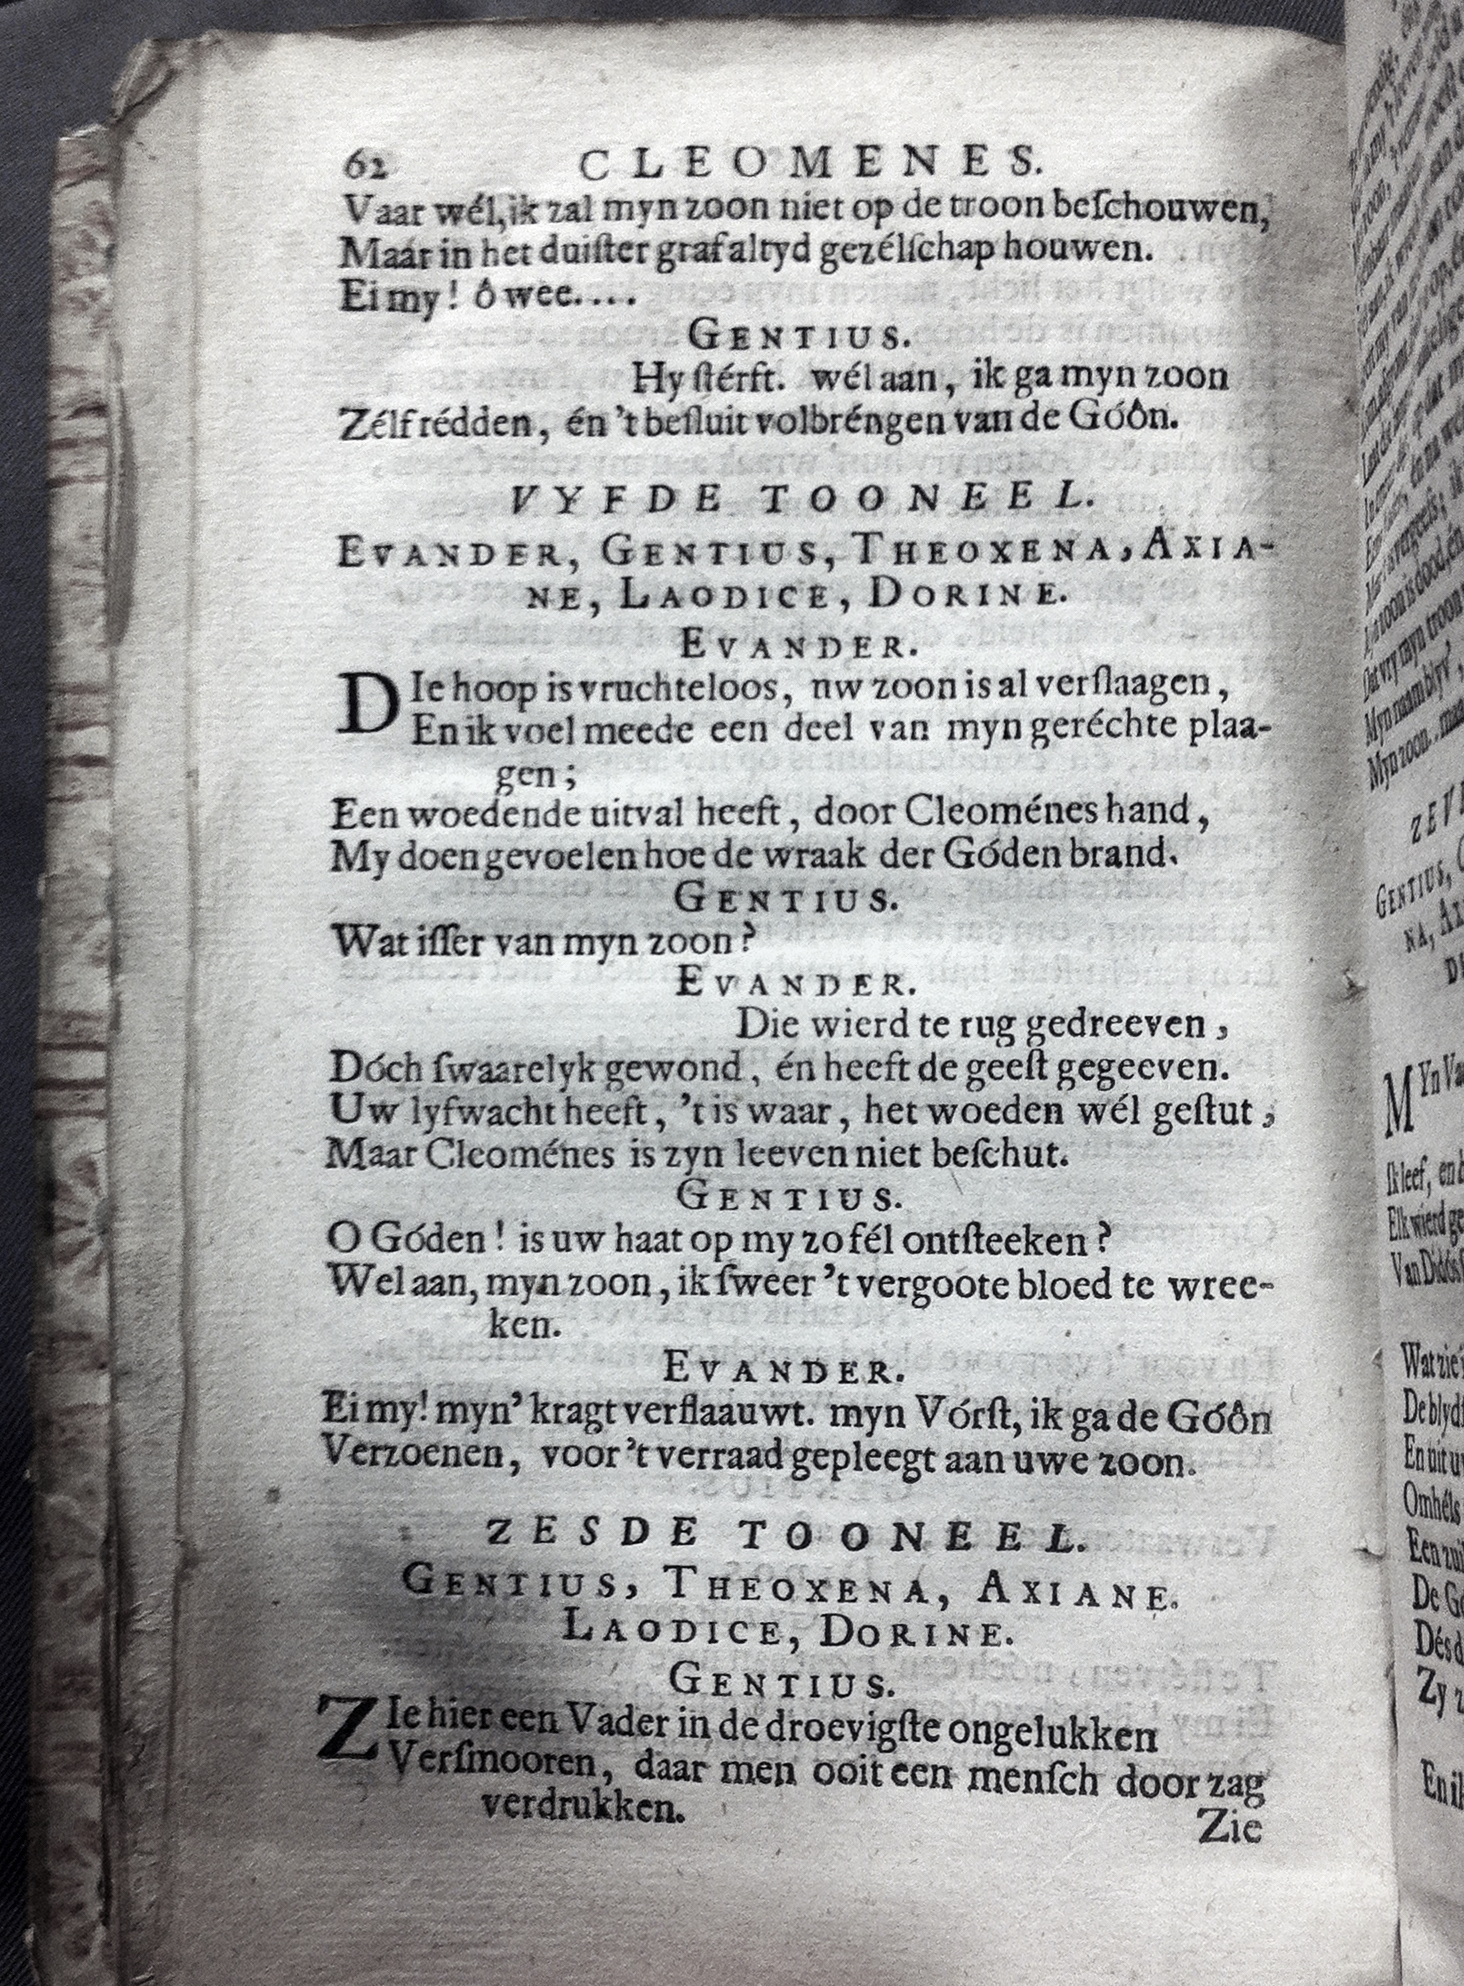 62 CLEOMENES.
Vaar wél, ik zal myn zoon niet op de troon beſchouwen,
Maar in het duiſter graf altyd gezélſchap houwen.
Ei my! ô wee....
GENTIUS.
Hy ſtérft. wél aan, ik ga myn zoon
Zélf rédden, én 't beſluit volbréngen van de Góôn.
VYFDE TOONEEL.
EVANDER, GENTIUS, THEOXENA, AXIA-
NE, LAODICE, DORINE.
EVANDER.
DIe hoop is vruchteloos, uw zoon is al verſlaagen,
En ik voel meede een deel van myn geréchte plaa-
gen;
Een woedende uitval heeft, door Cleoménes hand,
My doen gevoelen hoe de wraak der Góden brand.
GENTIUS.
Wat iſſer van myn zoon?
EVANDER.
Die wierd te rug gedreeven,
Dóch ſwaarelyk gewond, én heeft de geeſt gegeeven.
Uw lyfwacht heeft, 't is waar, het woeden wél geſtut,
Maar Cleoménes is zyn leeven niet beſchut.
GENTIUS.
O Góden! is uw haat op my zo fél ontſteeken?
Wel aan, myn zoon, ik ſweer 't vergoote bloed te wree-
ken.
EVANDER.
Ei my! myn' kragt verflaauwt. myn Vórſt, ik ga de Góôn
Verzoenen, voor 't verraad gepleegt aan uwe zoon.
ZESDE TOONEEL.
GENTIUS, THEOXENA, AXIANE.
LAODICE, DORINE.
GENTIUS.
ZIe hier een Vader in de droevigſte ongelukken
Verſmooren, daar men ooit een menſch door zag
verdrukken.
Zie